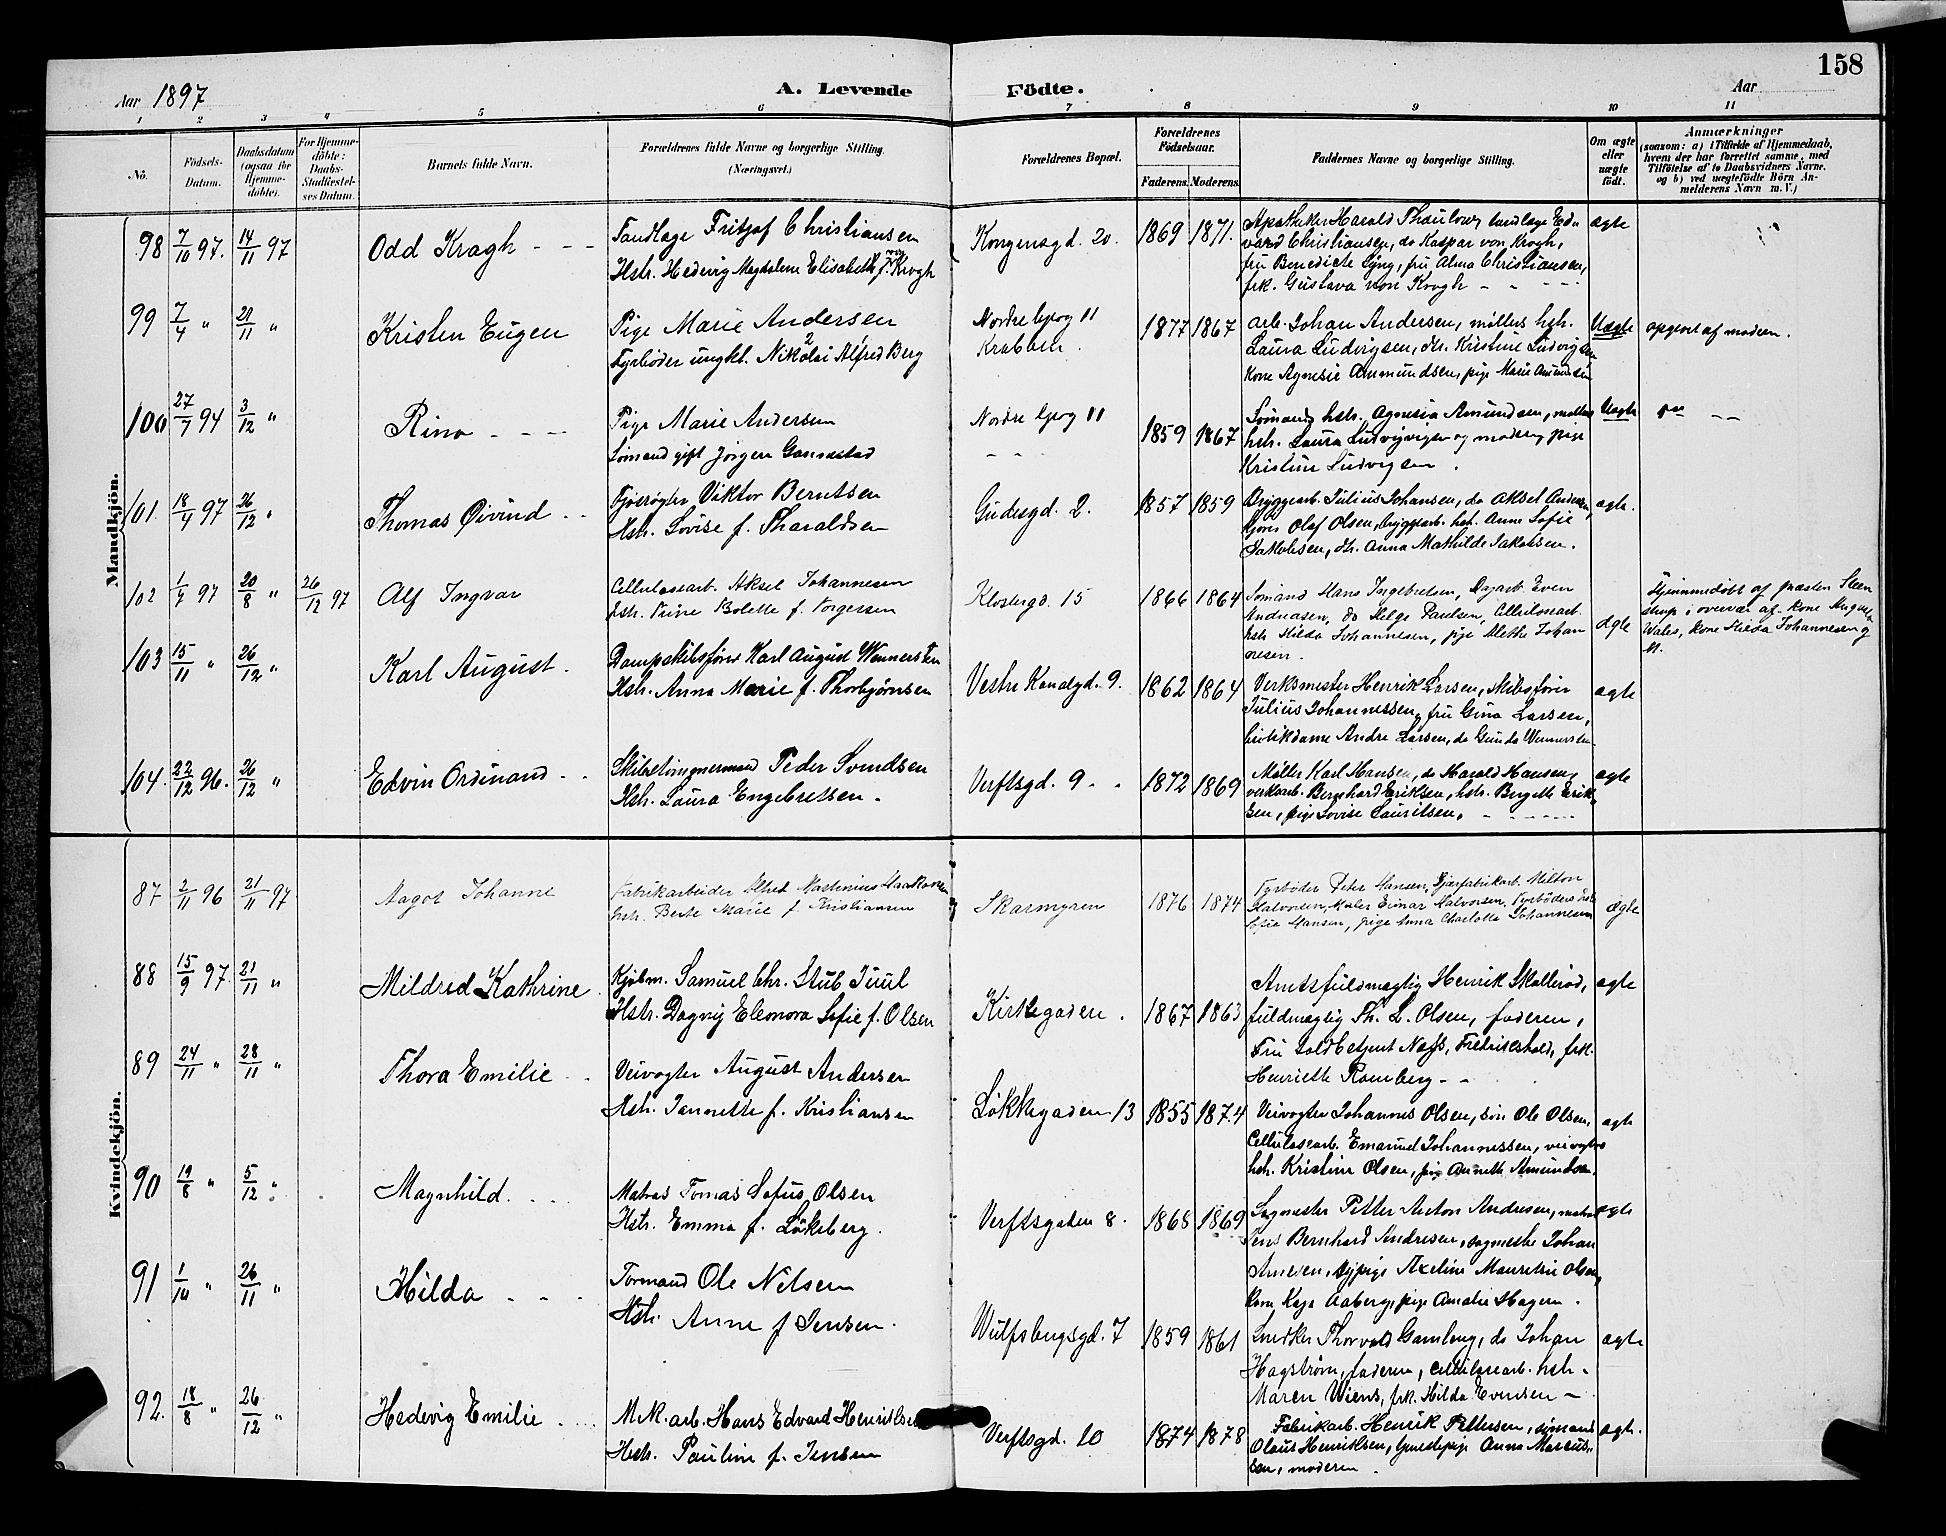 158
Aar 1897
A. Levende
Födte.
Aar
1 2 3 4 5 6 7 8 9 10 11
Nö.
Födsels-Datum.
Daabsdatum (ogsaa for Hjemme-döbte).
For Hjemme-döbte: Daabs-Stadfæstel-ses Datum.
Barnets fulde Navn.
Forældrenes fulde Navne og borgerlige Stilling. (Næringsvei.)
Forældrenes Bopæl.
Forældrenes Födselsaar.
Faderens. Moderens.
Faddernes Navne og borgerlige Stilling.
Om ægte eller uægte födt.
Anmærkninger
(saasom: a) i Tilfælde af Hjemmedaab, hvem der har forrettet samme, med Tilföielse af to Daabsvidners Navne, og b) ved uægtefödte Börn An-melderens Navn m. V.)
Mandkjön.
98 7/10 97. 14/11 97 Odd Kragh - - -
Tandlæge Fritjof Christiansen
Hstr. Hedevig Magdalene Elisabeth f. von Krogh
Kongensgd. 20. 1869 1871.
Apotheker Harald Thaulow, tandlæge Ed-
vard Christiansen, do Kaspar von Krogh,
fru Benedicte Lyng, fru Alma Christiansen,
frk. Gustava von Krogh - - - - -
ægte
99 7/4 " 21/11 " Kristen Eugen
Pige Marie Andersen
Fyrböder ungkl. Nikolai Alfred Berg
Nordre bjerg 11
Krabben.
1877 1867
arb. Johan Andersen, möllers hstr.
Laura Ludvigsen, do. Kristine Ludvigsen
Kone Agnesie Ammundsen, pige Marie Amundsen
Uægte opgivet af modern.
100 27/7 94 3/12 " Rino - - -
Pige Marie Andersen
Sömand gift Jörgen Gannestad
Nordre bjerg 11
- -
1859 1867
Sömands hstr. Agnesia Amundsen, möllers
hstr. Laura Ludvigsen og moderen, pige
Kristine Ludvigsen.
Uægte do - -
101. 18/4 97 26/12 " Thomas Øivind - -
Fjösrögter Viktor Berntsen
Hstr. Lovise f. Tharaldsen
Gudesgd. 2. 1857 1859
Bryggearb. Julius Johansen, do Aksel Andersen,
Olaf Olsen, bryggearb. hstr. Anne Sofie
Jakobsen, fr. Anna Mathilde Jakobsen.
ægte.
102 1/7 97 20/8 " 26/12 97 Alf Ingvar
Cellulosearb. Aksel Johannesen
hstr. Trine Bolette f. Torgersen
Klostergd. 15 1866 1864
Sömand Hans Ingebretsen, Dagarb. Even
Andreasen, do Helge Paulsen, Cellulosearb.
hstr. Hilda Johannesen, pige Alethe Johan
nesen.
ægte
Hjemmedöbt af præsten Steen
strup i overvær af kone
Wales, kone Hilda Johannesen og
103 15/11 " 26/12 " Karl August.
Dampskibsförer Karl August Wennersten
Hstr. Anna Marie f. Thorbjörnsen
Vestre Kanalgd. 9. 1862 1864
Verksmester Henrik Larsen, skibsförer
Julius Johannessen, fru Gina Larsen,
butikdame Andre Larsen, do Gunda Wennersten
ægte
104. 22/12 96. 26/12 " Edvin Ordinand - -
Skibstömmermand Peder Svendsen
Hstr. Laura Engebretsen.
Verftsgd. 9 - - 1872 1869
Möller Karl Hansen, do Harald Hansen,
verkarb. Bernhard Eriksen, hstr. Bergitte Erik-
sen, pige Lovise Lauritsen. - - - - -
ægte
Kvindekjön.
87 2/11 96 21/11 97 Aagot Johanne
Fabrikarbeider Alfred Martinius Haakonsen
hstr. Berte Marie f. Kristiansen
Skarmyren 1876 1874
Fyrböder Peter Hansen, Fabrikarb. Milton
Halvorsen, Maler Einar Halvorsen, Fyrböders hstr.
Sofie Hansen, pige Anna Charlotte Johannesen
ægte
88 15/9 97. 21/11 " Mildred Kathrine
Kjöbm. Samuel Chr. Stub Juul
Hstr. Dagny Eleonora Sofie f. Olsen
Kirkegaden. 1867 1863
Amtsfuldmægtig Henrik Skolleröd,
fuldmægtig Th. L. Olsen, faderen,
Fru Toldbetjent Næss, Fredrikshald, frk.
Henriette Ramberg - -
ægte
89 24/11 " 28/11 " Thora Emilie - -
Veivogter August Andersen
Hstr. Jannette f. Kristiansen
Lökkegaden 13 1855 1874
Veivogter Johannes Olsen, sön Ole Olsen,
Cellulosearb. Emanuel Johannessen, veivogters
hstr. Kristine Olsen, pige Annette Amundsen.
ægte
90 19/8 " 5/12 " Magnhild. - - -
Matros Tomas Sofus Olsen
Hstr. Emma f. Lökeberg.
Verftsgaden 8. 1868 1869
Sagmester Petter Anton Andresen, matros
Jens Bernhard Andresen, sagmester Johan
Arnesen, sypige Axeline Mauretzie Olsen,
Kone Kaja Aaberg, pige Amalie Hagen.
ægte
91 1/10 " 26/11 " Hilda - - -
Formand Ole Nilsen
Hstr. Anne f Jensen.
Wulfsbergsgd. 7 1859 1861
Snedker Thorvald Gamleng, do Johan
Hagström, faderen, cellulosearb. hstr.
Maren Wiens, frk. Hilda Evensen -
ægte
92. 18/8 " 26/12 " Hedevig Emilie. - -
M.K. arb. Hans Edvard Henriksen
Hstr. Pauline f. Jensen
Verftsgd. 10 1874 1878
Fabrikarb. Henrik Pettersen, sömand
Olaus Henriksen, tjenestepige Anna Marcus-
sen, moderen.
ægte.